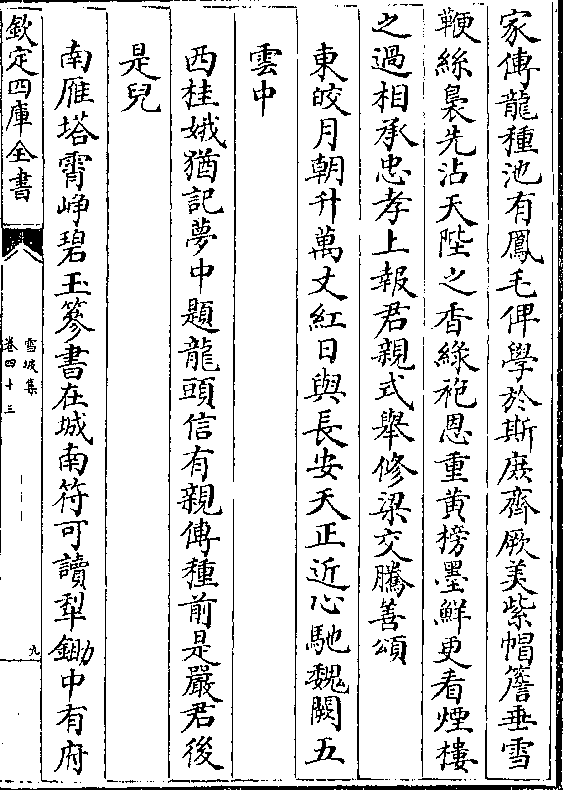 家傳龍種池有鳳毛俾學於斯庶齊厥美紫帽簷垂雪
鞭絲裊先沾天陛之香緑袍恩重黄榜墨鮮更看煙樓
之過相承忠孝上報君親式舉修梁交騰善頌
東皎月朝升萬丈紅日與長安天正近心馳魏闕五
雲中
西桂娥猶記夢中題龍頭信有親傳種前是嚴君後
是兒
南雁塔霄崢碧玉篸書在城南符可讀犁鋤中有府
欽定四庫全書
雪坡集
卷四十三
九